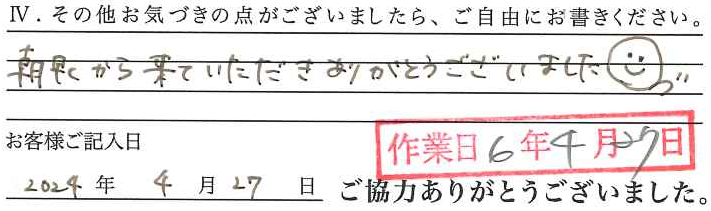 Ⅳ.その他お気づきの点がございましたら、ご自由にお書きください。
朝早くから来ていただきありがとうございました
お客様ご記入日
作業日 6年4月27日
2024年 4月27日
ご協力ありがとうございました。